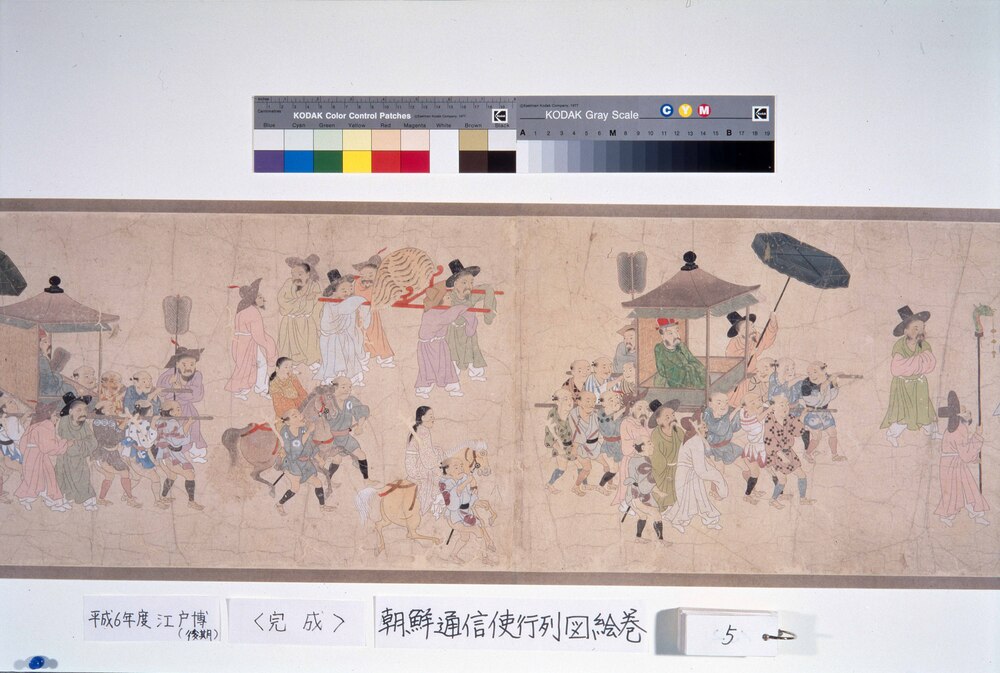 KODAK Color Control Patches
Blue Cyan Green Yellow Red Magenta White Brown Black
KODAK Gray Scale
C Y M
A 1 2 3 4 5 6 M 8 9 10 11 12 13 14 15 B 17 18 19
平成6年度 江戸博
〈完 成〉
朝鮮通信使行列図絵巻
5